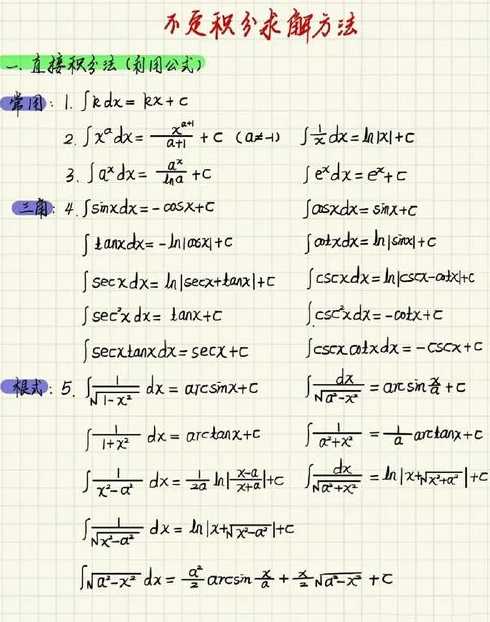 不定积分求解方法
一.直接积分法(利用公式)
常用: 1. ∫k dx = kx + C
2. ∫x^a dx = x^(a+1)/(a+1) + C (a≠-1) ∫1/x dx = ln|x| + C
3. ∫a^x dx = a^x/ln a + C ∫e^x dx = e^x + C
三角: 4. ∫sinx dx = -cosx + C ∫cosx dx = sinx + C
∫tanx dx = -ln|cosx| + C ∫cotx dx = ln|sinx| + C
∫secx dx = ln|secx+tanx| + C ∫cscx dx = ln|cscx-cotx| + C
∫sec²x dx = tanx + C ∫csc²x dx = -cotx + C
∫secxtanx dx = secx + C ∫cscxcotx dx = -cscx + C
根式: 5. ∫1/√(1-x²) dx = arcsinx + C ∫dx/√(a²-x²) = arcsin x/a + C
∫1/(1+x²) dx = arctanx + C ∫1/(a²+x²) = 1/a arctanx + C
∫1/(x²-a²) dx = 1/2a ln|(x-a)/(x+a)| + C ∫dx/√(a²+x²) = ln|x+√(x²+a²)| + C
∫1/√(x²-a²) dx = ln|x+√(x²-a²)| + C
∫√(a²-x²) dx = a²/2 arcsin x/a + x/2 √(a²-x²) + C